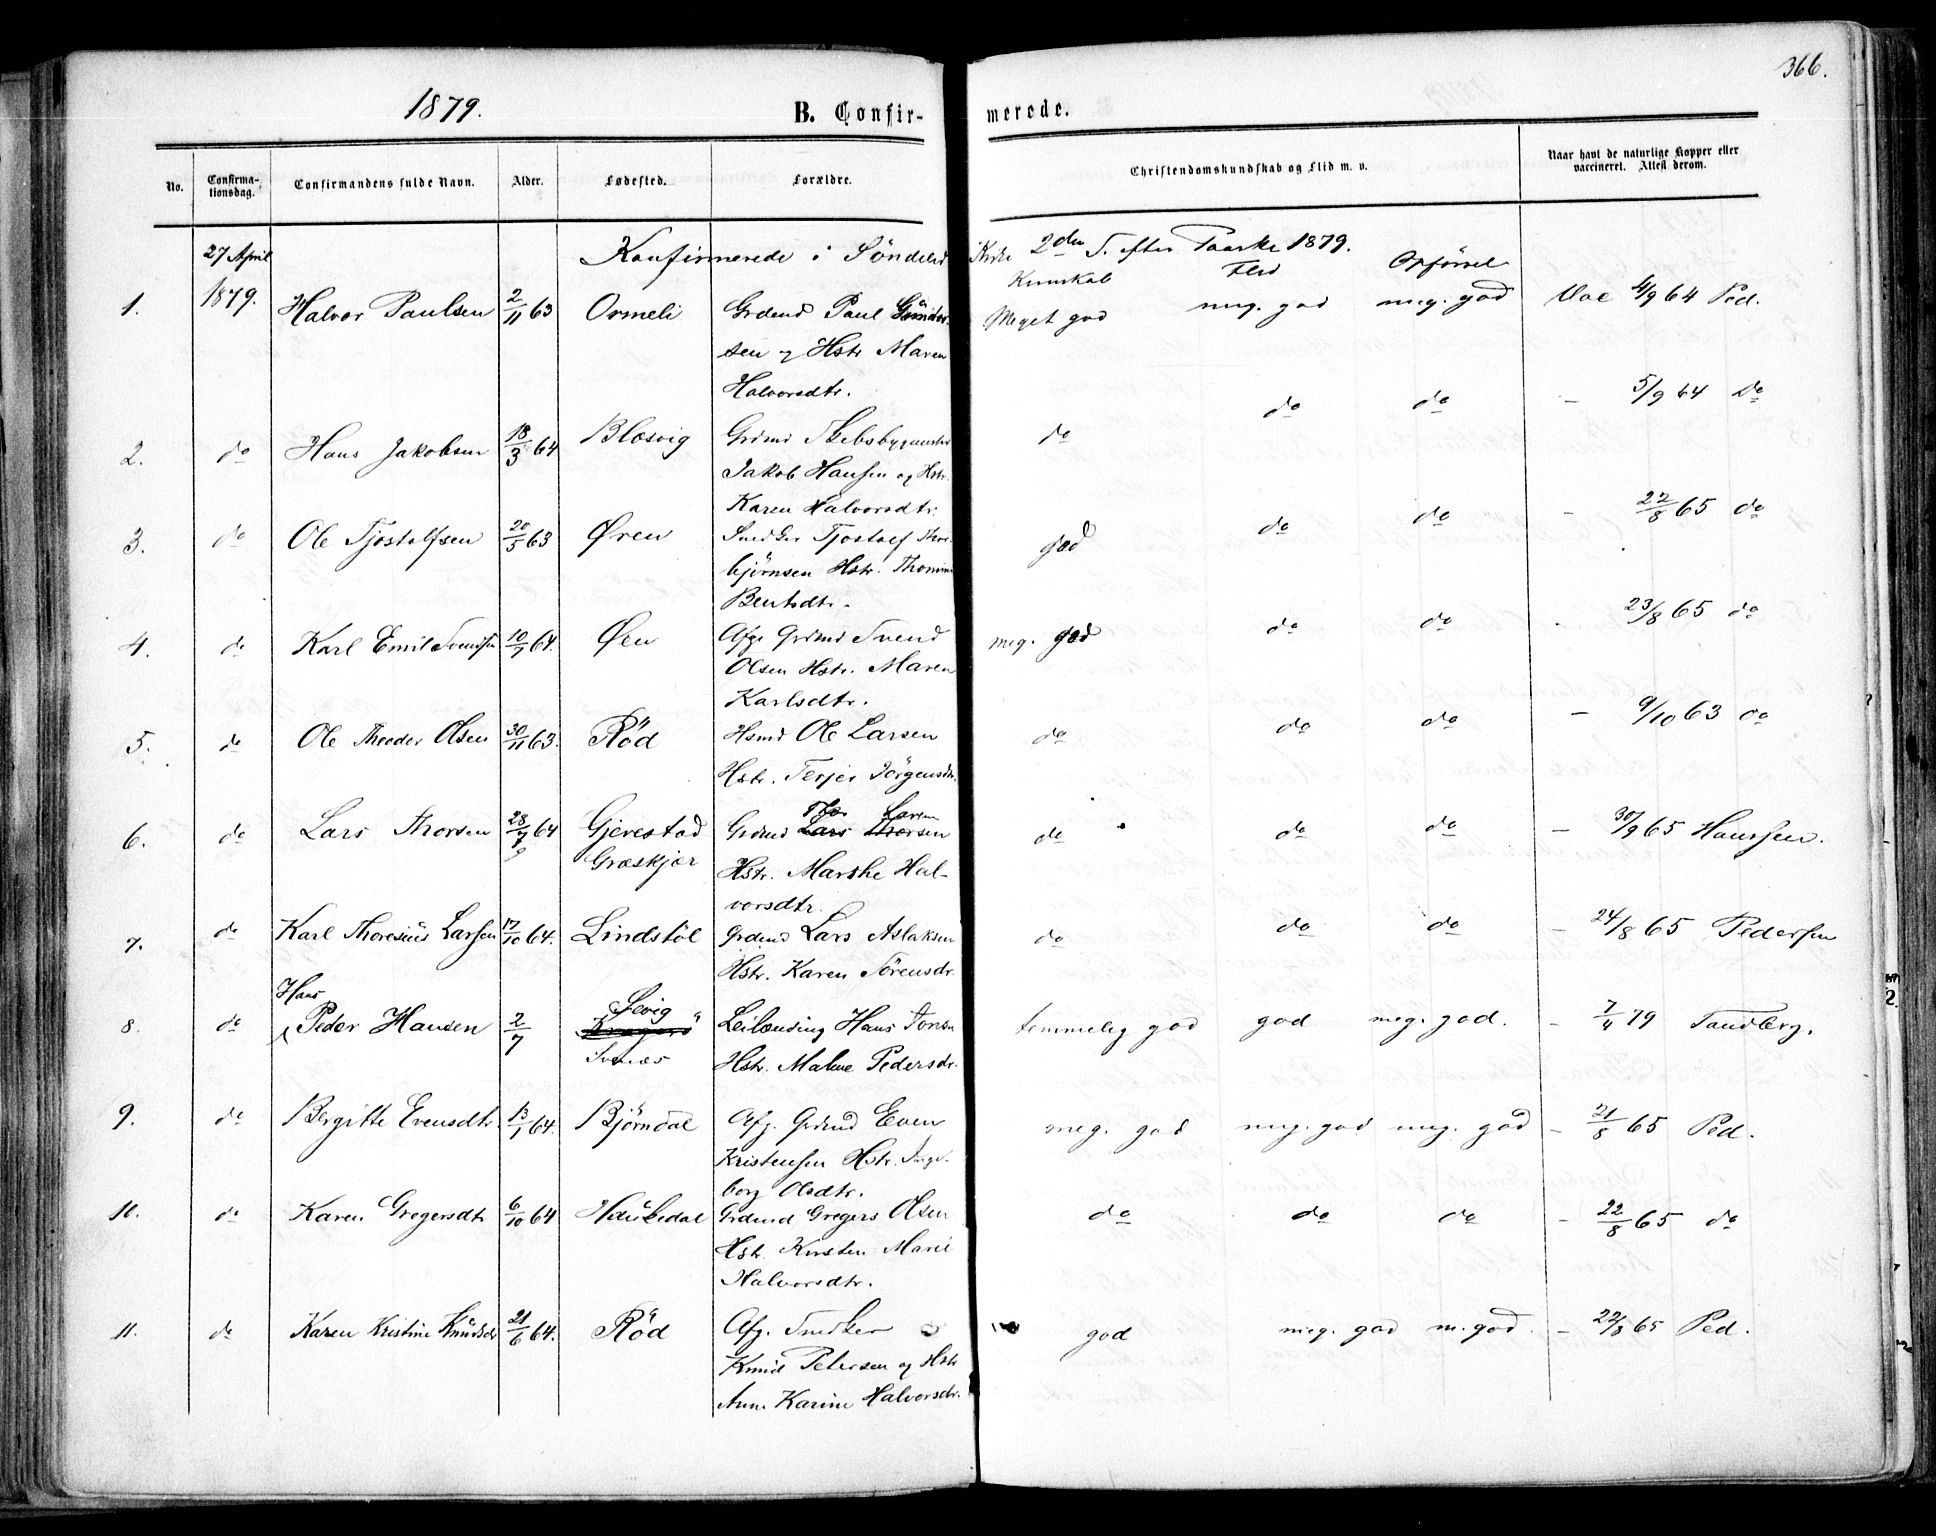 366.
1879.
B. Confir-
merede.
No.
Confirma-
tionsdag.
Confirmandens fulde Navn.
Alder.
Fødested.
Forældre.
Christendomskundskab og Flid m. v.
Naar havt de naturlige Kopper eller
vaccineret. Attest derom.
27 April
1879.
Konfirmerede i Söndeled Kirke 2den S. efter Paaske 1879.
Kunnskab Flid Opförsel
1. Halvor Paulsen 2/11 63 Ormeli Grdmd Paul Gunder- Meget god meg. god meg. god Vac 4/9 64 Ped.
sen og Hstr Maren
Halvorsdtr.
2. do Hans Jakobsen 18/3 64 Blæsvig Grdmd Skibsbygmester do do do - 5/9 64 Do
Jakob Hansen og Hstr.
Karen Halvorsdtr.
3. do Ole Tjostolfsen 20/5 63 Øren Snedker Tjostolf Thor- god do do - 22/8 65 do
björnsen Hstr. Thomine
Bentsdtr.
4. do Karl Emil Svendsen 10/7 64. Øen Afg. Grdmd Svend meg. god do do - 23/8 65 do
Olsen Hstr. Maren
Karlsdtr.
5. do Ole Theodor Olsen 30/11 63. Röd Hsmd Ole Larsen do do do - 9/10 63 do
Hstr. Terjer Jörgensdtr.
Thor Larsen
6. do Lars Thorsen 28/7 64 Gjerestad Grdmd Lars Thorsen do do do - 30/9 65 Hanssen.
9 Græskjær Hstr. Marthe Hal-
vorsdtr.
7. do Karl Thoresius Larsen 17/10 64. Lindstöl Grdmd Lars Aslaksen do do do - 24/8 65 Pedersen
Hstr. Karen Sörensdr.
Hans
8. do Peder Hansen 2/7 Sevig Leilænding Hans Jonsn temmelig god god meg. god. - 7/4 79 Sandberg.
Kragerö
Hstr. Malene Pedersdr.
9. do Bergitte Evensdtr. 13/1 64. Björndal Afg. Grdmd Even meg. god meg. god meg. god - 21/8 65 Ped.
Kristensen Hstr. Inge-
borg Olsdtr.
10. do Karen Gregersdtr 6/10 64 Haukedal Grdmd Gregers Olsen do do do - 22/8 65 do
Hstr. Kirsten Marie
Halvorsdtr.
11. do Karen Kristine Knudsdr 21/6 64. Röd Afg. Snedker god meg. god m. god. - 22/8 65 Ped.
Knud Petersen og Hstr
Anne Karine Halvorsdr.